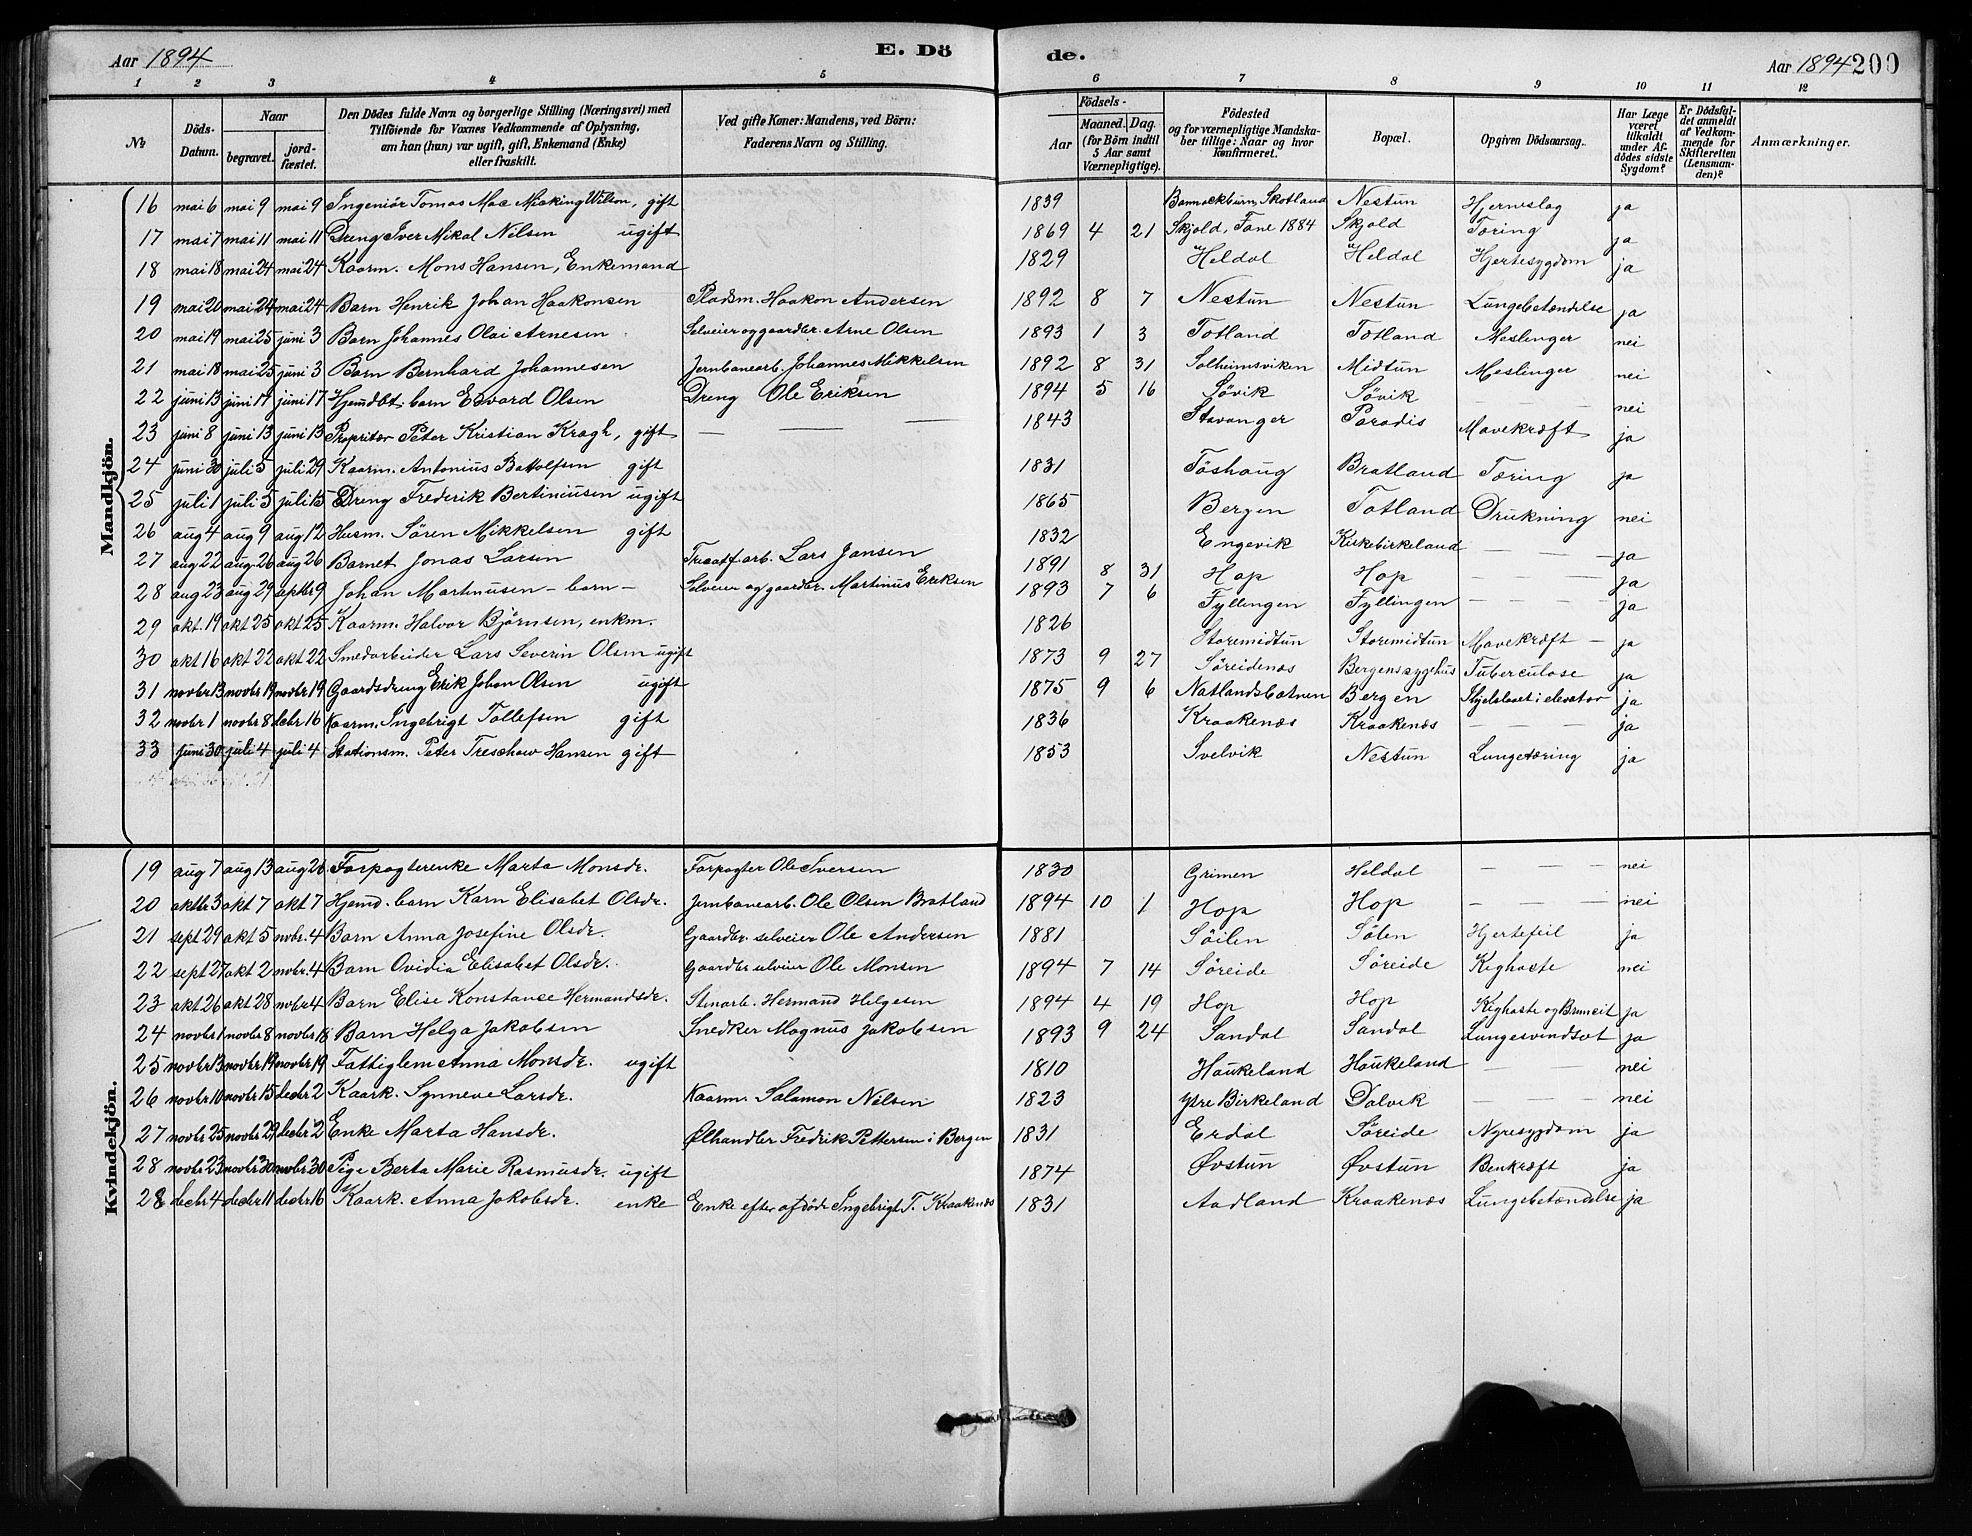 Aar 1894 E. Dö de. Aar 1894 200
1 2 3 4 5 6 7 8 9 10 11 12
No Döds-Datum. Naar begravet. jordfæstet. Den Dödes fulde Navn og borgerlige Stilling (Næringsvei) med Tilföiende for Voxnes Vedkommende af Oplysning, om han (hun) var ugift, gift, Enkemand (Enke) eller fraskilt. Ved gifte Koner: Mandens, ved Börn: Faderens Navn og Stilling. Födsels- Aar Maaned. Dag. (for Börn indtil 5 Aar samt Værnepligtige). Födested og for værnepligtige Mandskaber tillige: Naar og hvor Konfirmeret. Bopæl. Opgiven Dödsaarsag. Har Læge været tilkaldt under Afdödes sidste Sygdom? Er Dödsfaldet anmeldt af Vedkommende for Skifteretten (Lensmanden)? Anmærkninger.
Mandkjön.
16 mai 6 mai 9 mai 9 Ingeniör Tomas Mac Micking Wilson, gift 1839 Bannockburn, Skotland Nestun Hjerneslag ja
17 mai 7 mai 11 mai 11 Dreng Iver Mikal Nilsen ugift 1869 4 21 Skjold, Fane 1884 Skjold Tæring ja
18 mai 18 mai 24 mai 24 Kaarm. Mons Hansen, Enkemand 1829 Heldal Heldal Hjertesygdom ja
19 mai 20 mai 24 mai 24 Barn Henrik Johan Haakonsen Pladsm. Haakon Andersen 1892 8 7 Nestun Nestun Lungebetændelse ja
20 mai 19 mai 25 juni 3 Barn Johannes Olai Arnesen Selveier og gaardbr. Arne Olsen 1893 1 3 Totland Totland Meslinger nei
21 mai 18 mai 25 juni 3 Barn Bernhard Johannesen Jernbanearb. Johannes Mikkelsen 1892 8 31 Solheimsviken Midtun Meslinger nei
22 juni 13 juni 17 juni 17 Hjemdbt barn Edvard Olsen Dreng Ole Eriksen 1894 5 16 Søvik Søvik — — nei
23 juni 8 juni 13 juni 13 Propritær Peter Kristian Kragh, gift — — — 1843 Stavanger Paradis Mavekræft ja
24 juni 30 juli 5 juli 29 Kaarm. Antonius Battolfsen gift 1831 Töshaug Bratland Tæring ja
25 juli 1 juli 5 juli 15 Dreng Frederik Bertiniusen ugift 1865 Bergen Totland Drukning nei
26 aug 4 aug 9 aug 12 Husm. Sören Mikkelsen gift 1832 Engevik Kirkebirkeland — — — ja
27 aug 22 aug 26 aug 26 Barnet Jonas Larsen Lars Jansen 1891 8 31 Hop Hop — — — ja
28 aug 23 aug 29 septbr 9 Johan Martinusen – barn – Selveier og gaardbr. Martinus Eriksen 1893 7 6 Fyllingen Fyllingen — — — ja
29 okt. 19 okt 25 okt 25 Kaarm. Halvor Björnsen, enkm. 1826 Storemidtun Storemidtun Mavekræft – ja
30 okt 16 okt 22 okt 22 Smedarbeider Lars Severin Olsen ugift 1873 9 27 Søreidenæs Bergens sygehus Tuberculose ja
31 novbr 13 novbr 19 novbr 19 Gaardsdreng Erik Johan Olsen ugift 1875 9 6 Natlandsbotnen Bergen Ihjelslaaet i elevator ja
32 novbr 1 novbr 8 decbr 16 Kaarm. Ingebrigt Tollefsen gift 1836 Kraakenæs Kraakenæs — — ja
33 juni 30 juli 4 juli 4 Stationsm. Peter Treschow Hansen gift 1853 Svelvik Nestun Lungetæring ja
Kvindekjön.
19 aug 7 aug 13 aug 26 Forpagterenke Marta Monsdr. Forpagter Ole Iversen 1830 Grimen Heldal — — — nei
20 oktbr 3 okt 7 okt 7 Hjemd. barn Karn Elisabet Olsdr. Jernbanearb. Ole Olsen Bratland 1894 10 1 Hop Hop — — — nei
21 sept 29 okt 5 novbr. 4 Barn Anna Josefine Olsdr. Gaardbr. selveier Ole Andersen 1881 Söilen Sölen Hjertefeil ja
22 sept 27 okt 2 novbr. 4 Barn Ovidia Elisabet Olsdr. Gaardbr selveier Ole Monsen 1894 7 14 Søreide Søreide Kighoste nei
23 okt 26 okt 28 novbr 4 Barn Elise Konstanse Hermandsdr. Stenarb. Hermand Helgesen 1894 4 19 Hop Hop Kighoste og Bronceit ja
24 novbr 1 novbr 8 novbr 18 Barn Helga Jakobsen Snedker Magnus Jakobsen 1893 9 24 Sandal Sandal Lungesvindsot ja
25 novbr 13 novbr 19 novbr 19 Fattiglem Anna Monsdr. ugift 1810 Haukeland Haukeland — — nei
26 novbr 10 novbr 15 decbr 2 Kaark. Synneve Larsdr. Kaarm. Salamon Nilsen 1823 Ytre Birkeland Dalvik — — — nei
27 novbr 25 novbr 29 decbr 2 Enke Marta Hansdr. Ølhandler Fredrik Pettersen i Bergen 1831 Erdal Søreide Nyresygdom ja
28 novbr 23 novbr 30 novbr 30 Pige Berta Marie Rasmusdr. ugift 1874 Øvstun Øvstun Benkræft ja
28 decbr 4 decbr 11 decbr 16 Kaark. Anna Jakobsdr. enke Enke efter afdöde Ingebrigt T. Kraakenæs 1831 Aadland Kraakenæs Lungebetændelse ja